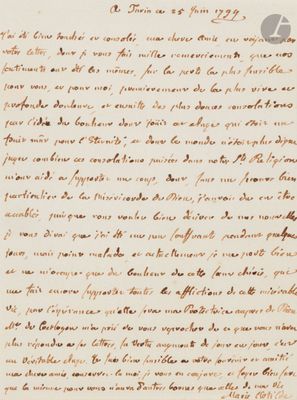 A Turin ce 25 Juin 1794
J'ai été bien touchée et consolée, ma chere Amie en voyant par
votre lettre, dont je vous fais mille remerciements, que vos
sentiments ont été les mêmes, sur la perte la plus sensible
pour vous, et pour moi, premierement de la plus vive et
profonde douleur et ensuite des plus douces consolations
par l'idée du bonheur dont jouit cet ange qui étoit
mûr pour l'Eternité, et dont le monde n'étoit plus digne
jugez combien ces consolations puisées dans notre Ste Religion
m'ont aidé a supporter un coup, dont, sans un secours bien
particulier de la misericorde de Dieu, j'aurois du en être
accablée, puisque vous voulez bien désirer de mes nouvelles
je vous dirai que j'ai été un peu souffrante pendant quelque
jours, mais point malade, et actuellement je me porte bien
et ne m'occupe que du bonheur de cette soeur cherie, qui
me fait encore supporter toutes les afflictions de cette miserable
vie, par l'espérance qu'elle sera ma Protectrice aupres de Dieu
m'a prié de vous reprocher de ce que vous n'avez
plus répondu a sa lettre, sa vertu augmente de jour en jour c'est
un véritable ange. Je suis bien sensible a votre souvenir et amitié
ma chere amie, conservez la moi je vous en conjure, et soyez bien sure
que la mienne pour vous n'aura d'autres bornes que celles de ma vie
Marie Clotilde